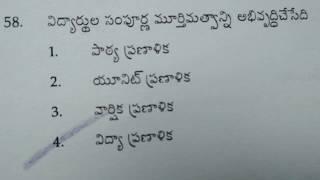 58. విద్యార్థుల సంపూర్ణ మూర్తిమత్వాన్ని అభివృద్ధిచేసేది
1. పాఠ్య ప్రణాళిక
2. యూనిట్ ప్రణాళిక
3. వార్షిక ప్రణాళిక
4. విద్యా ప్రణాళిక